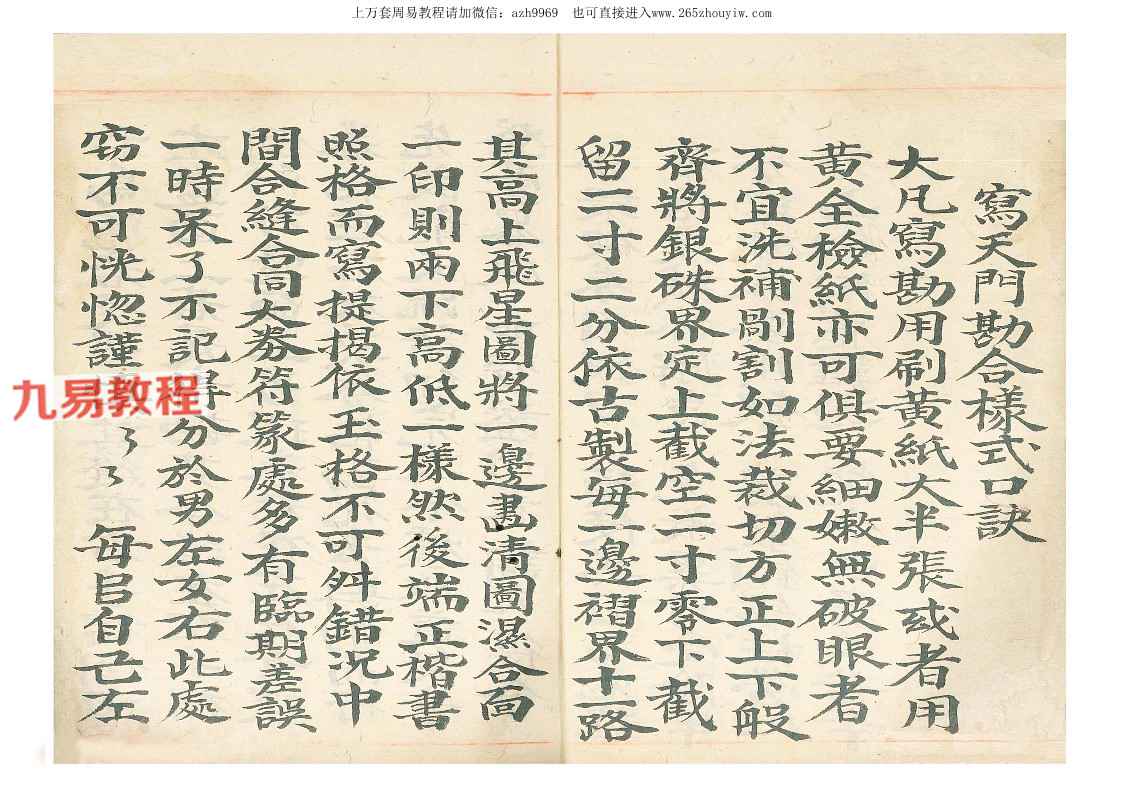 上万套周易教程请加微信：azh9969 也可直接进入www.265zhouyiw.com
寫天門勘合樣式口訣
大凡寫勘用刷黃紙大半張或者用
黃全檢紙亦可俱要細嫩無破眼者
不宜洗補剮割如法裁切方正上下般
齊將銀硃界定上截空二寸零下截
留二寸二分依古製每一邊褶界十一路
其高上飛星圖將一邊畵清圖濕合面
一印則兩下高低一樣然後端正楷書
照格而寫提揭依玉格不可舛錯况中
間合縫合同大券符篆處多有臨期差誤
一時呆了不記得分於男左女右此處
窃不可恍惚謹 每㠯自亡左
九易教程